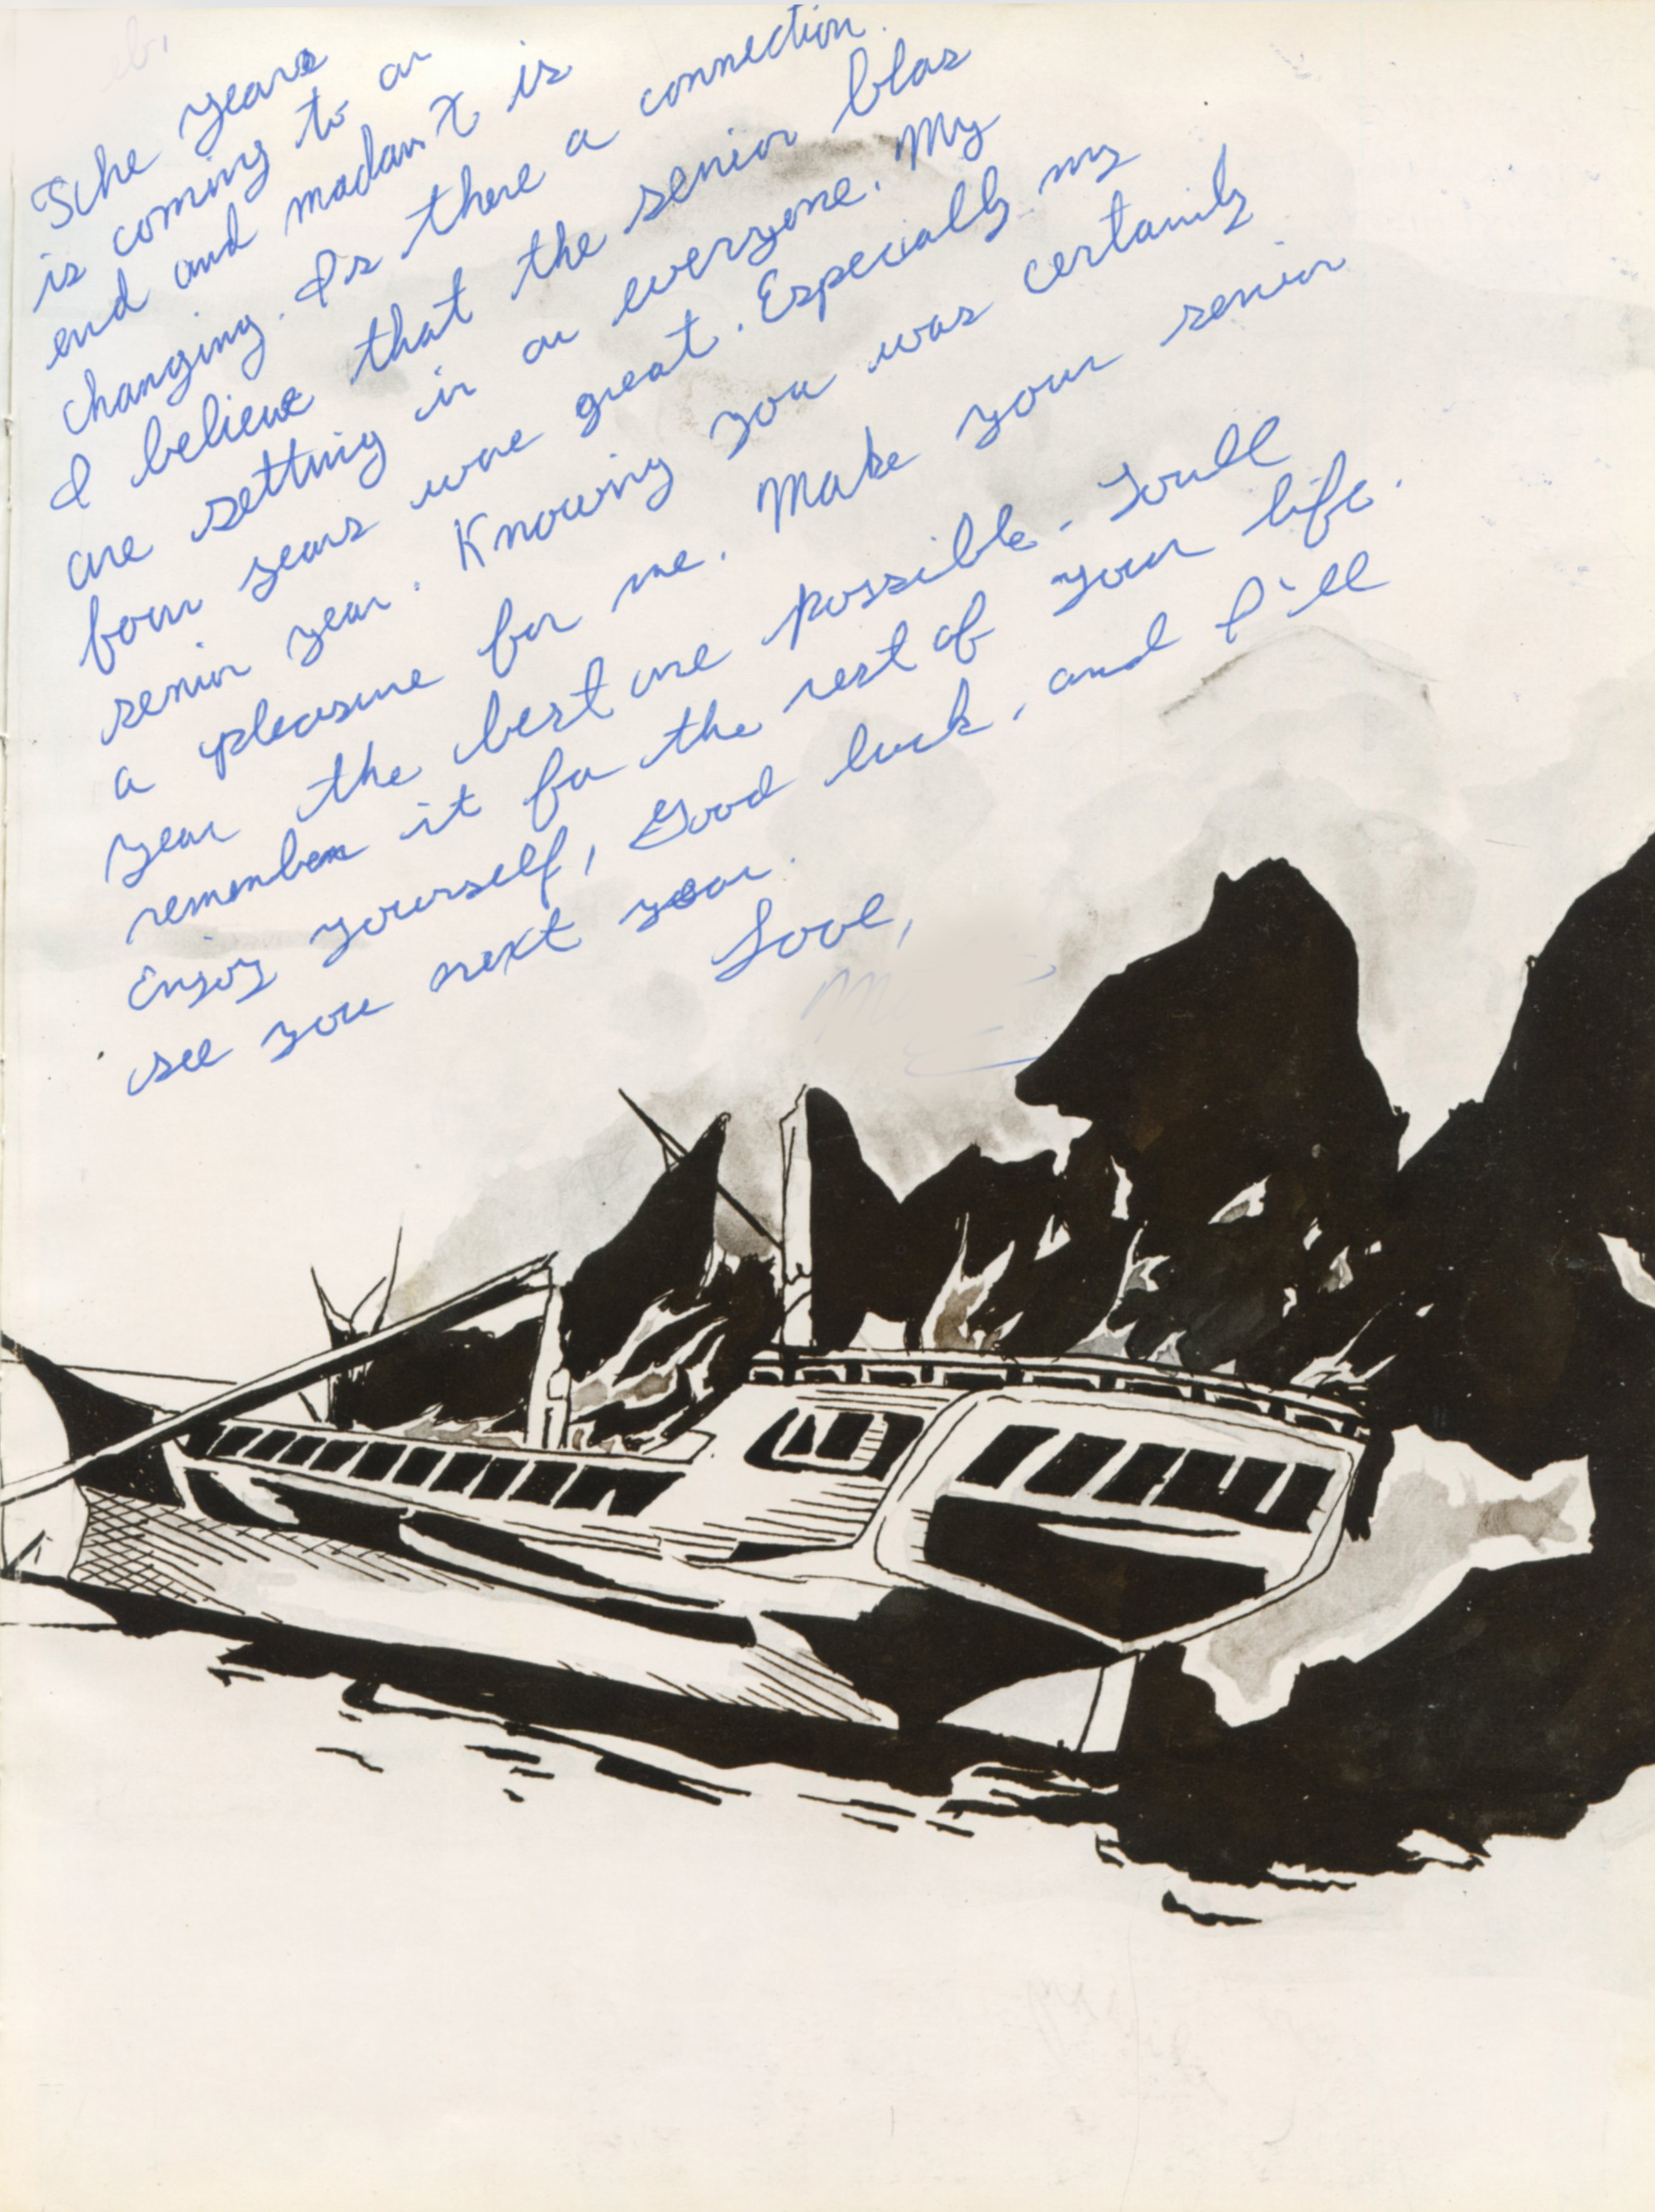 The years
is coming to an
end and madam X is
changing. Is there a connection.
I believe that the senior blas
are setting in on everyone. My
four years were great. Especially my
senior year. Knowing you was certainly
a pleasure for me. Make your senior
year the best one possible. Youll
remember it for the rest of your life.
Enjoy yourself, Good luck, and I'll
see you next year.
Love,